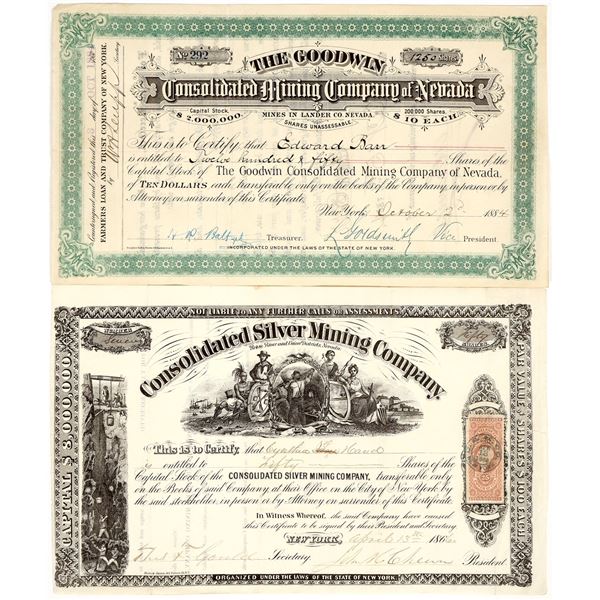 No 292
1250 Shares
THE GOODWIN
Consolidated Mining Company of Nevada
Capital Stock,
$2,000,000.
MINES IN LANDER CO. NEVADA.
SHARES UNASSESSABLE.
200,000 SHARES.
$10 EACH.
This is to Certify that Edward Barr
is entitled to Twelve hundred & fifty Shares of the
Capital Stock of The Goodwin Consolidated Mining Company of Nevada.
of TEN DOLLARS each, transferable only on the books of the Company, in person or by
Attorney, on surrender of this Certificate.
New York, October 2d 1884
Treasurer.
L Goldsmith Vice President.
INCORPORATED UNDER THE LAWS OF THE STATE OF NEW YORK.
Countersigned and Registered this day of OCT
FARMERS LOAN AND TRUST COMPANY OF NEW YORK.
by
Secretary
NOT LIABLE TO ANY FURTHER CALLS OR ASSESSMENTS.
NUMBER
SHARES
Consolidated Silver Mining Company.
CAPITAL $3,000,000
PAR VALUE OF SHARES $10 EACH
This is to Certify that Cynthia Hand
is entitled to Fifty Shares of the
Capital Stock of the CONSOLIDATED SILVER MINING COMPANY, transferable only
on the Books of said Company, at their Office, in the City of New York, by
the said stockholder, in person or by Attorney on surrender of this Certificate.
In Witness Whereof, the said Company have caused
this Certificate to be signed by their President and Secretary.
NEW YORK, April 13th 186
Secretary
President
ORGANIZED UNDER THE LAWS OF THE STATE OF NEW YORK